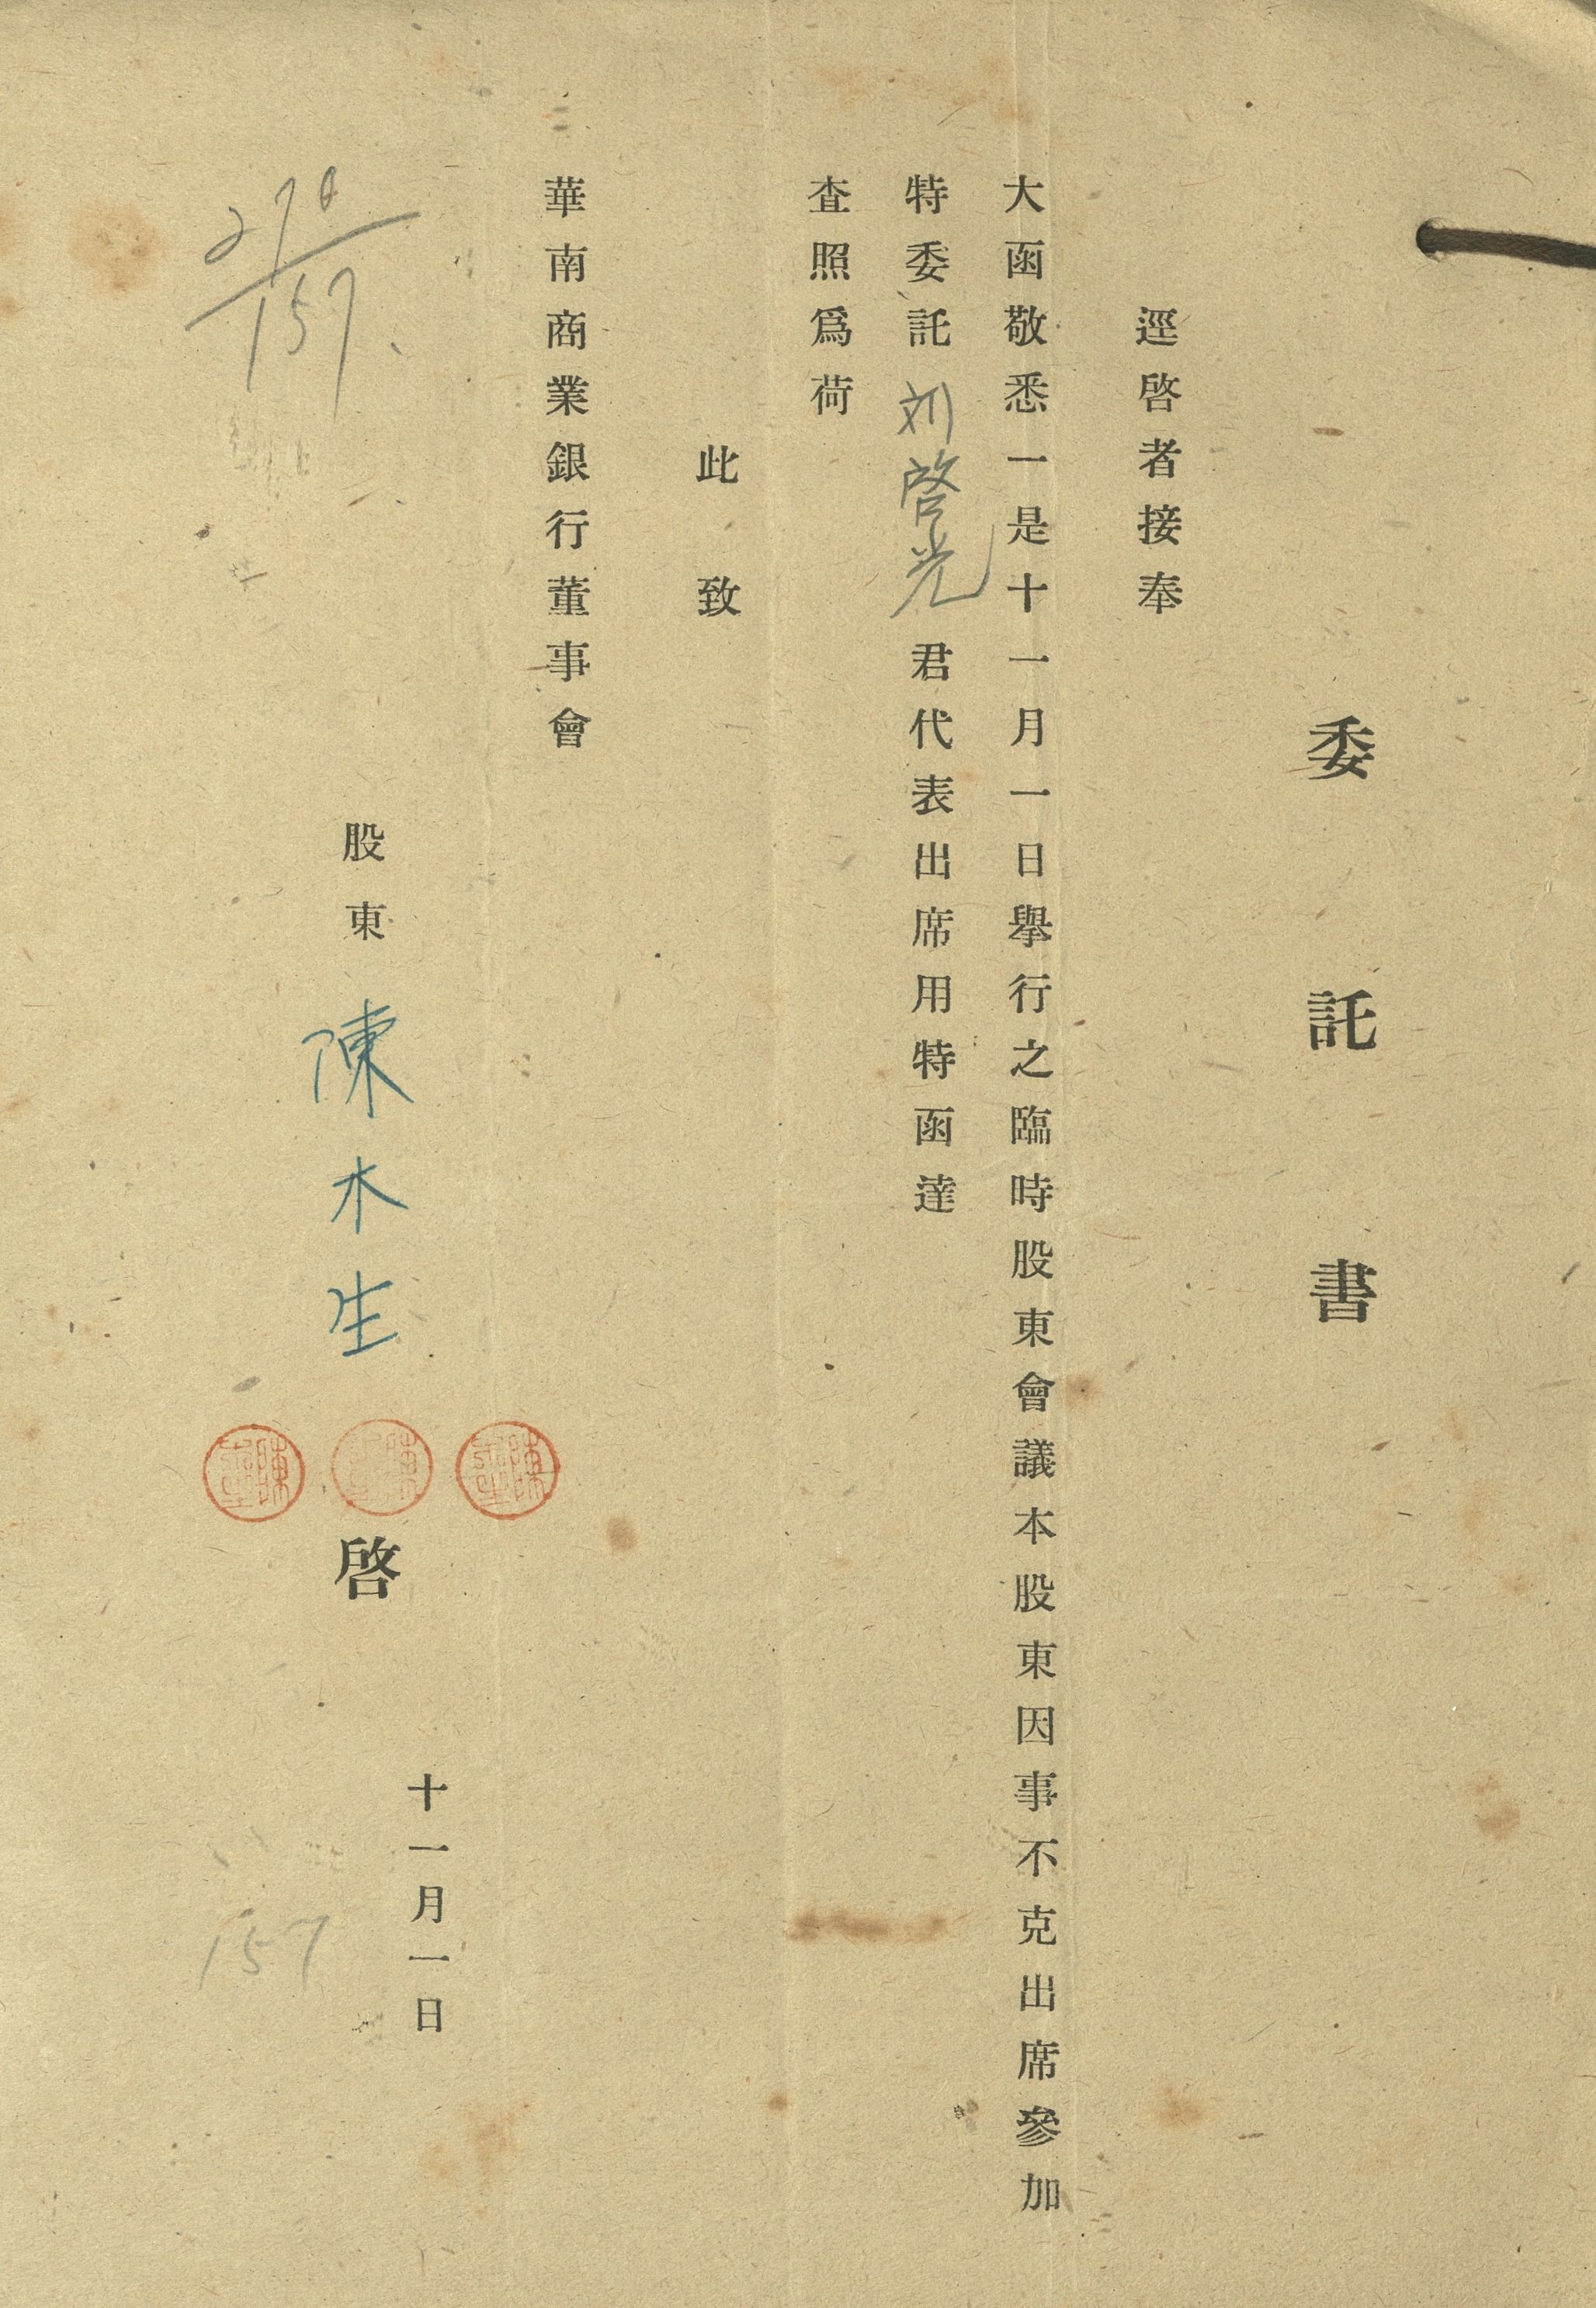 委託書
逕啓者接奉
大函敬悉一是十一月一日舉行之臨時股東會議本股東因事不克出席參加
特委託刘啓光君代表出席用特函達
查照爲荷
此致
華南商業銀行董事會
股東陳木生啓
十一月一日
157
157